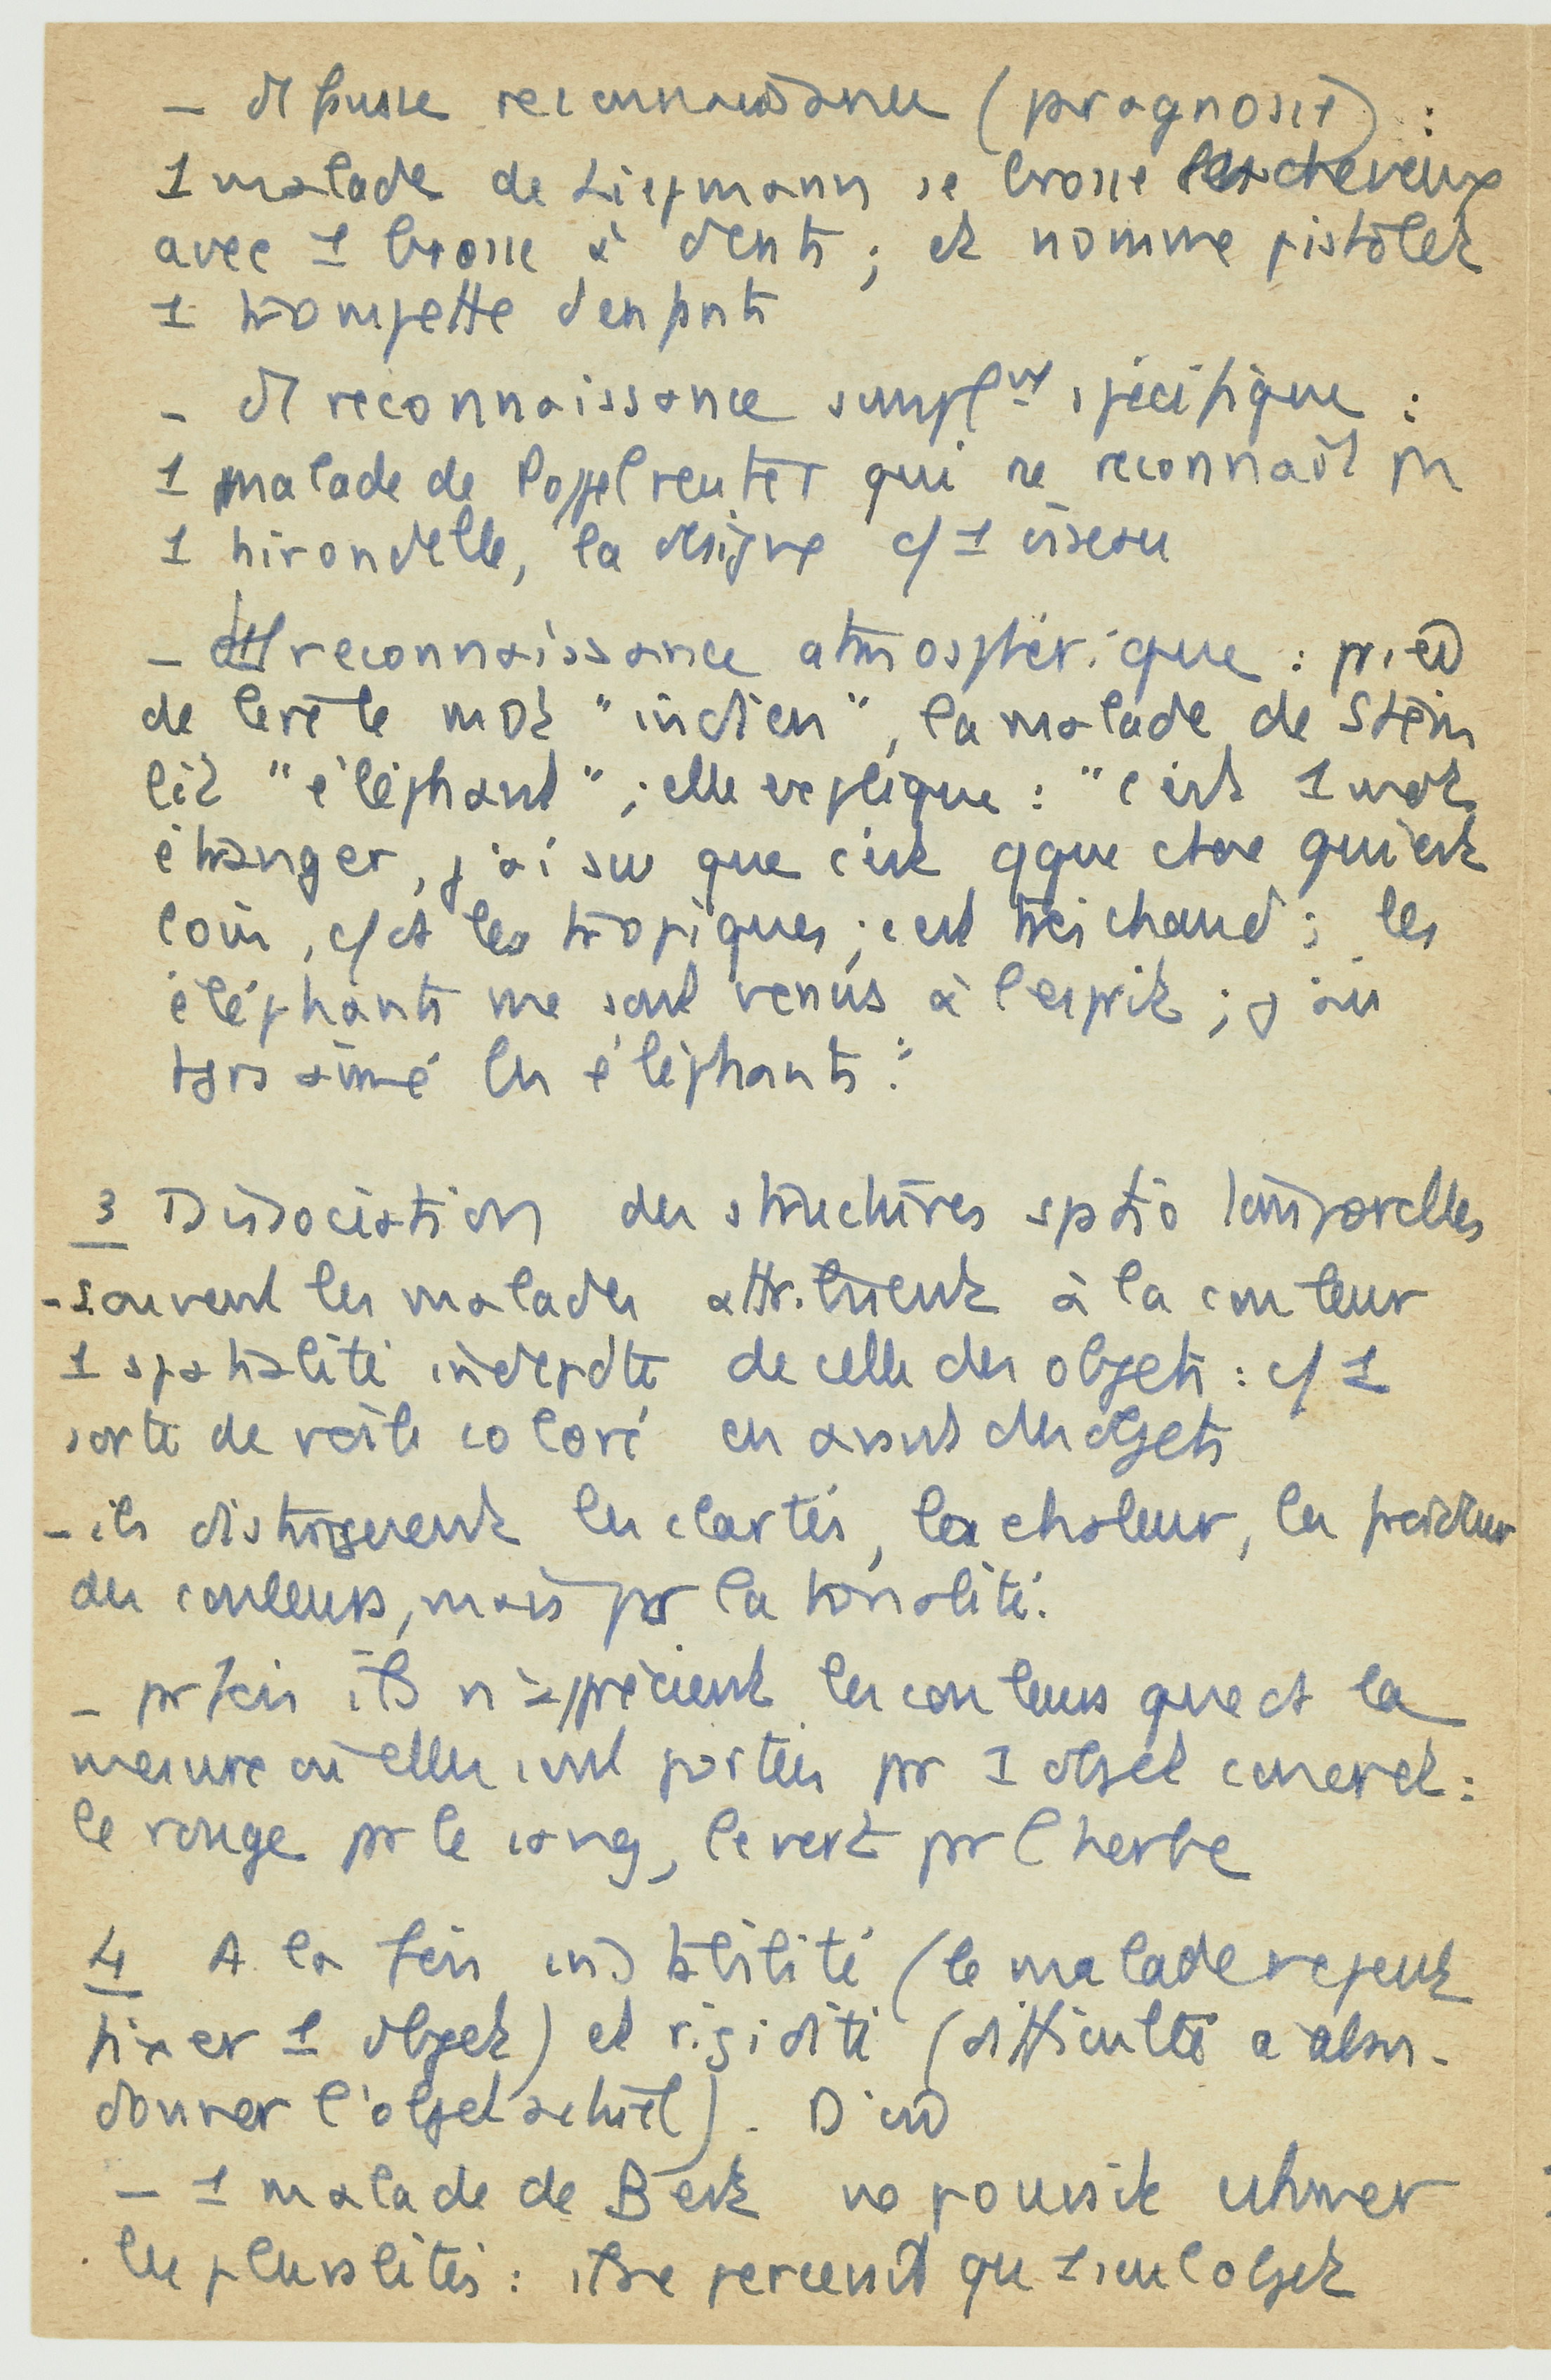 - de fausse reconnaissance (paragnosie) :
1 malade de Liepmann se brosse les cheveux
avec 1 brosse à dents ; et nomme pistolet
1 trompette d'enfants
- de reconnaissance simplt spécifique :
1 malade de Poppelreuter qui ne reconnaît pas
1 hirondelle, la désigne c/ 1 oiseau
- de reconnaissance atmosphérique : priée
de lire le mot "indien", la malade de Stein
lit "éléphant" ; elle explique : "c'est 1 mot
étranger, j'ai su que c'est qque chose qui est
loin, c/ ds les tropiques ; c'est très chaud ; les
éléphants me sont venus à l'esprit ; j'ai
tjrs aimé les éléphants."
3 Dissociation des structures spatio temporelles
- souvent les malades attribuent à la couleur
1 spatialité indepdte de celle des objets : c/ 1
sorte de voile coloré en avant des objets
- ils distinguent les clartés, la chaleur, la froideur
des couleurs, mais pas la tonalité.
- parfois ils n'apprécient les couleurs que ds la
mesure où elles sont portées par 1 objet concret :
le rouge par le sang, le vert par l'herbe
4 A la fois instabilité (le malade ne peut
fixer 1 objet) et rigidité (difficulté à aban-
donner l'objet actuel). D'où
- 1 malade de Best ne pouvait estimer
les pluralités : il ne percevait qu'1 seul objet